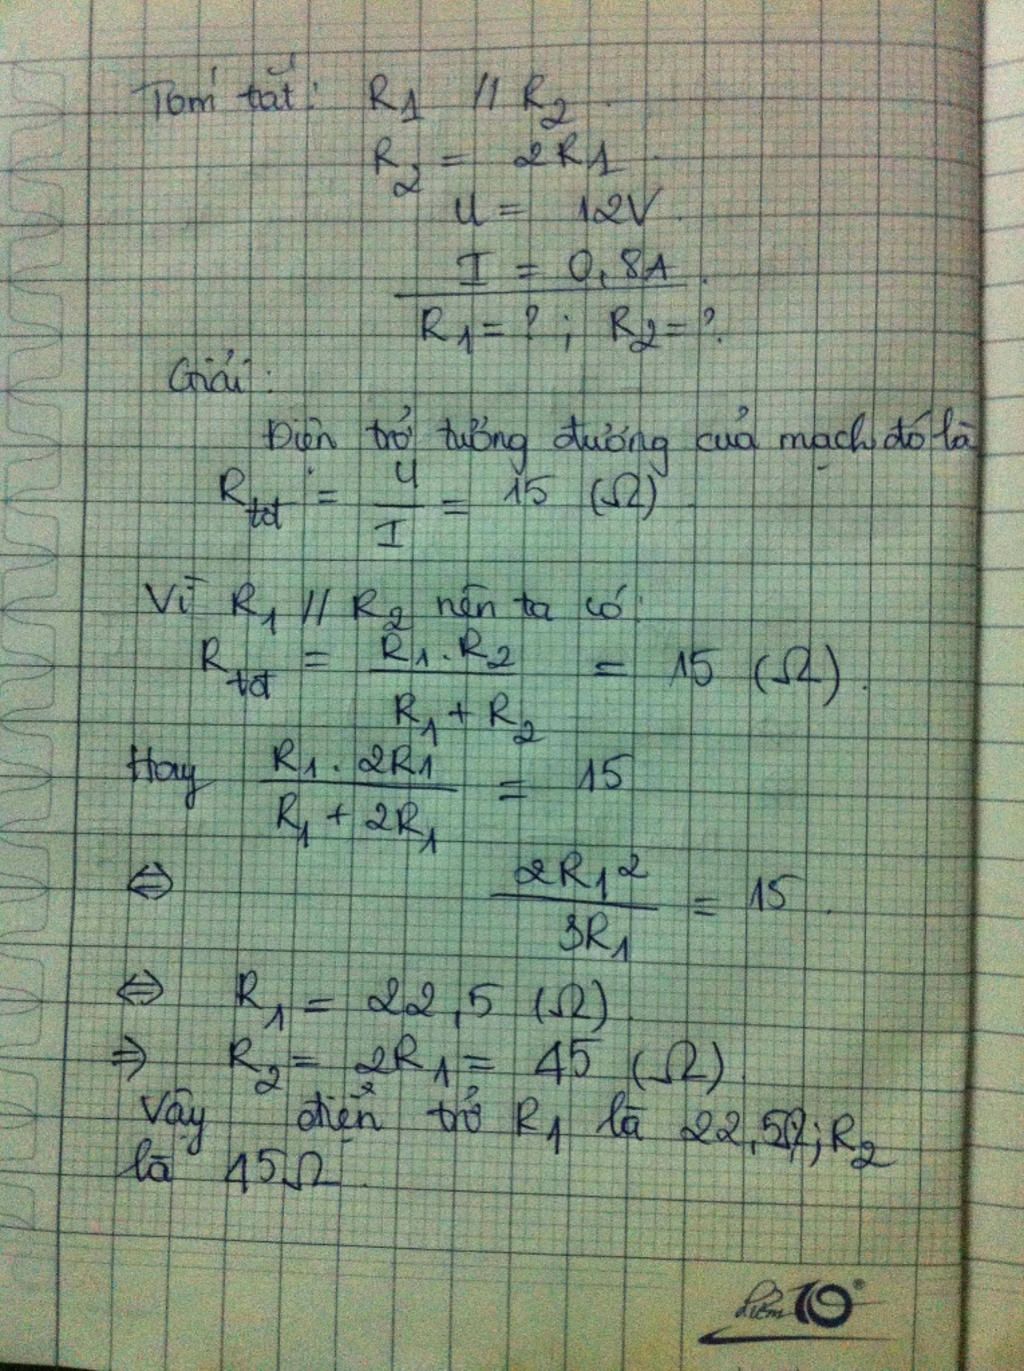 Tóm tắt: R1 // R2.
R2 = 2R1.
U = 12V.
I = 0,8A.
R1 = ? ; R2 = ?.
Giải:
Điện trở tương đương của mạch đó là
Rtđ = U/I = 15 (Ω).
Vì R1 // R2 nên ta có:
Rtđ = R1.R2 / R1 + R2 = 15 (Ω).
Hay R1 . 2R1 / R1 + 2R1 = 15
⇔ 2R1² / 3R1 = 15.
⇔ R1 = 22,5 (Ω).
⇒ R2 = 2R1 = 45 (Ω).
Vậy điện trở R1 là 22,5Ω; R2
là 45Ω.
Điểm 10